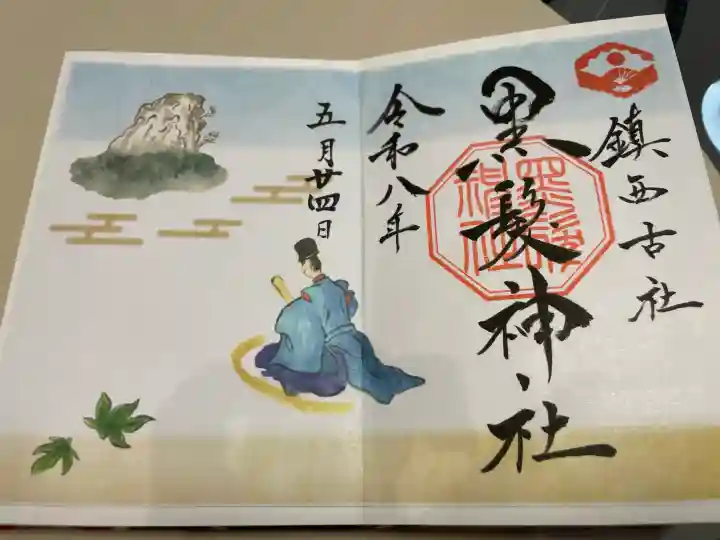 鎮西古社
黒髪神社
令和八年
五月廿四日